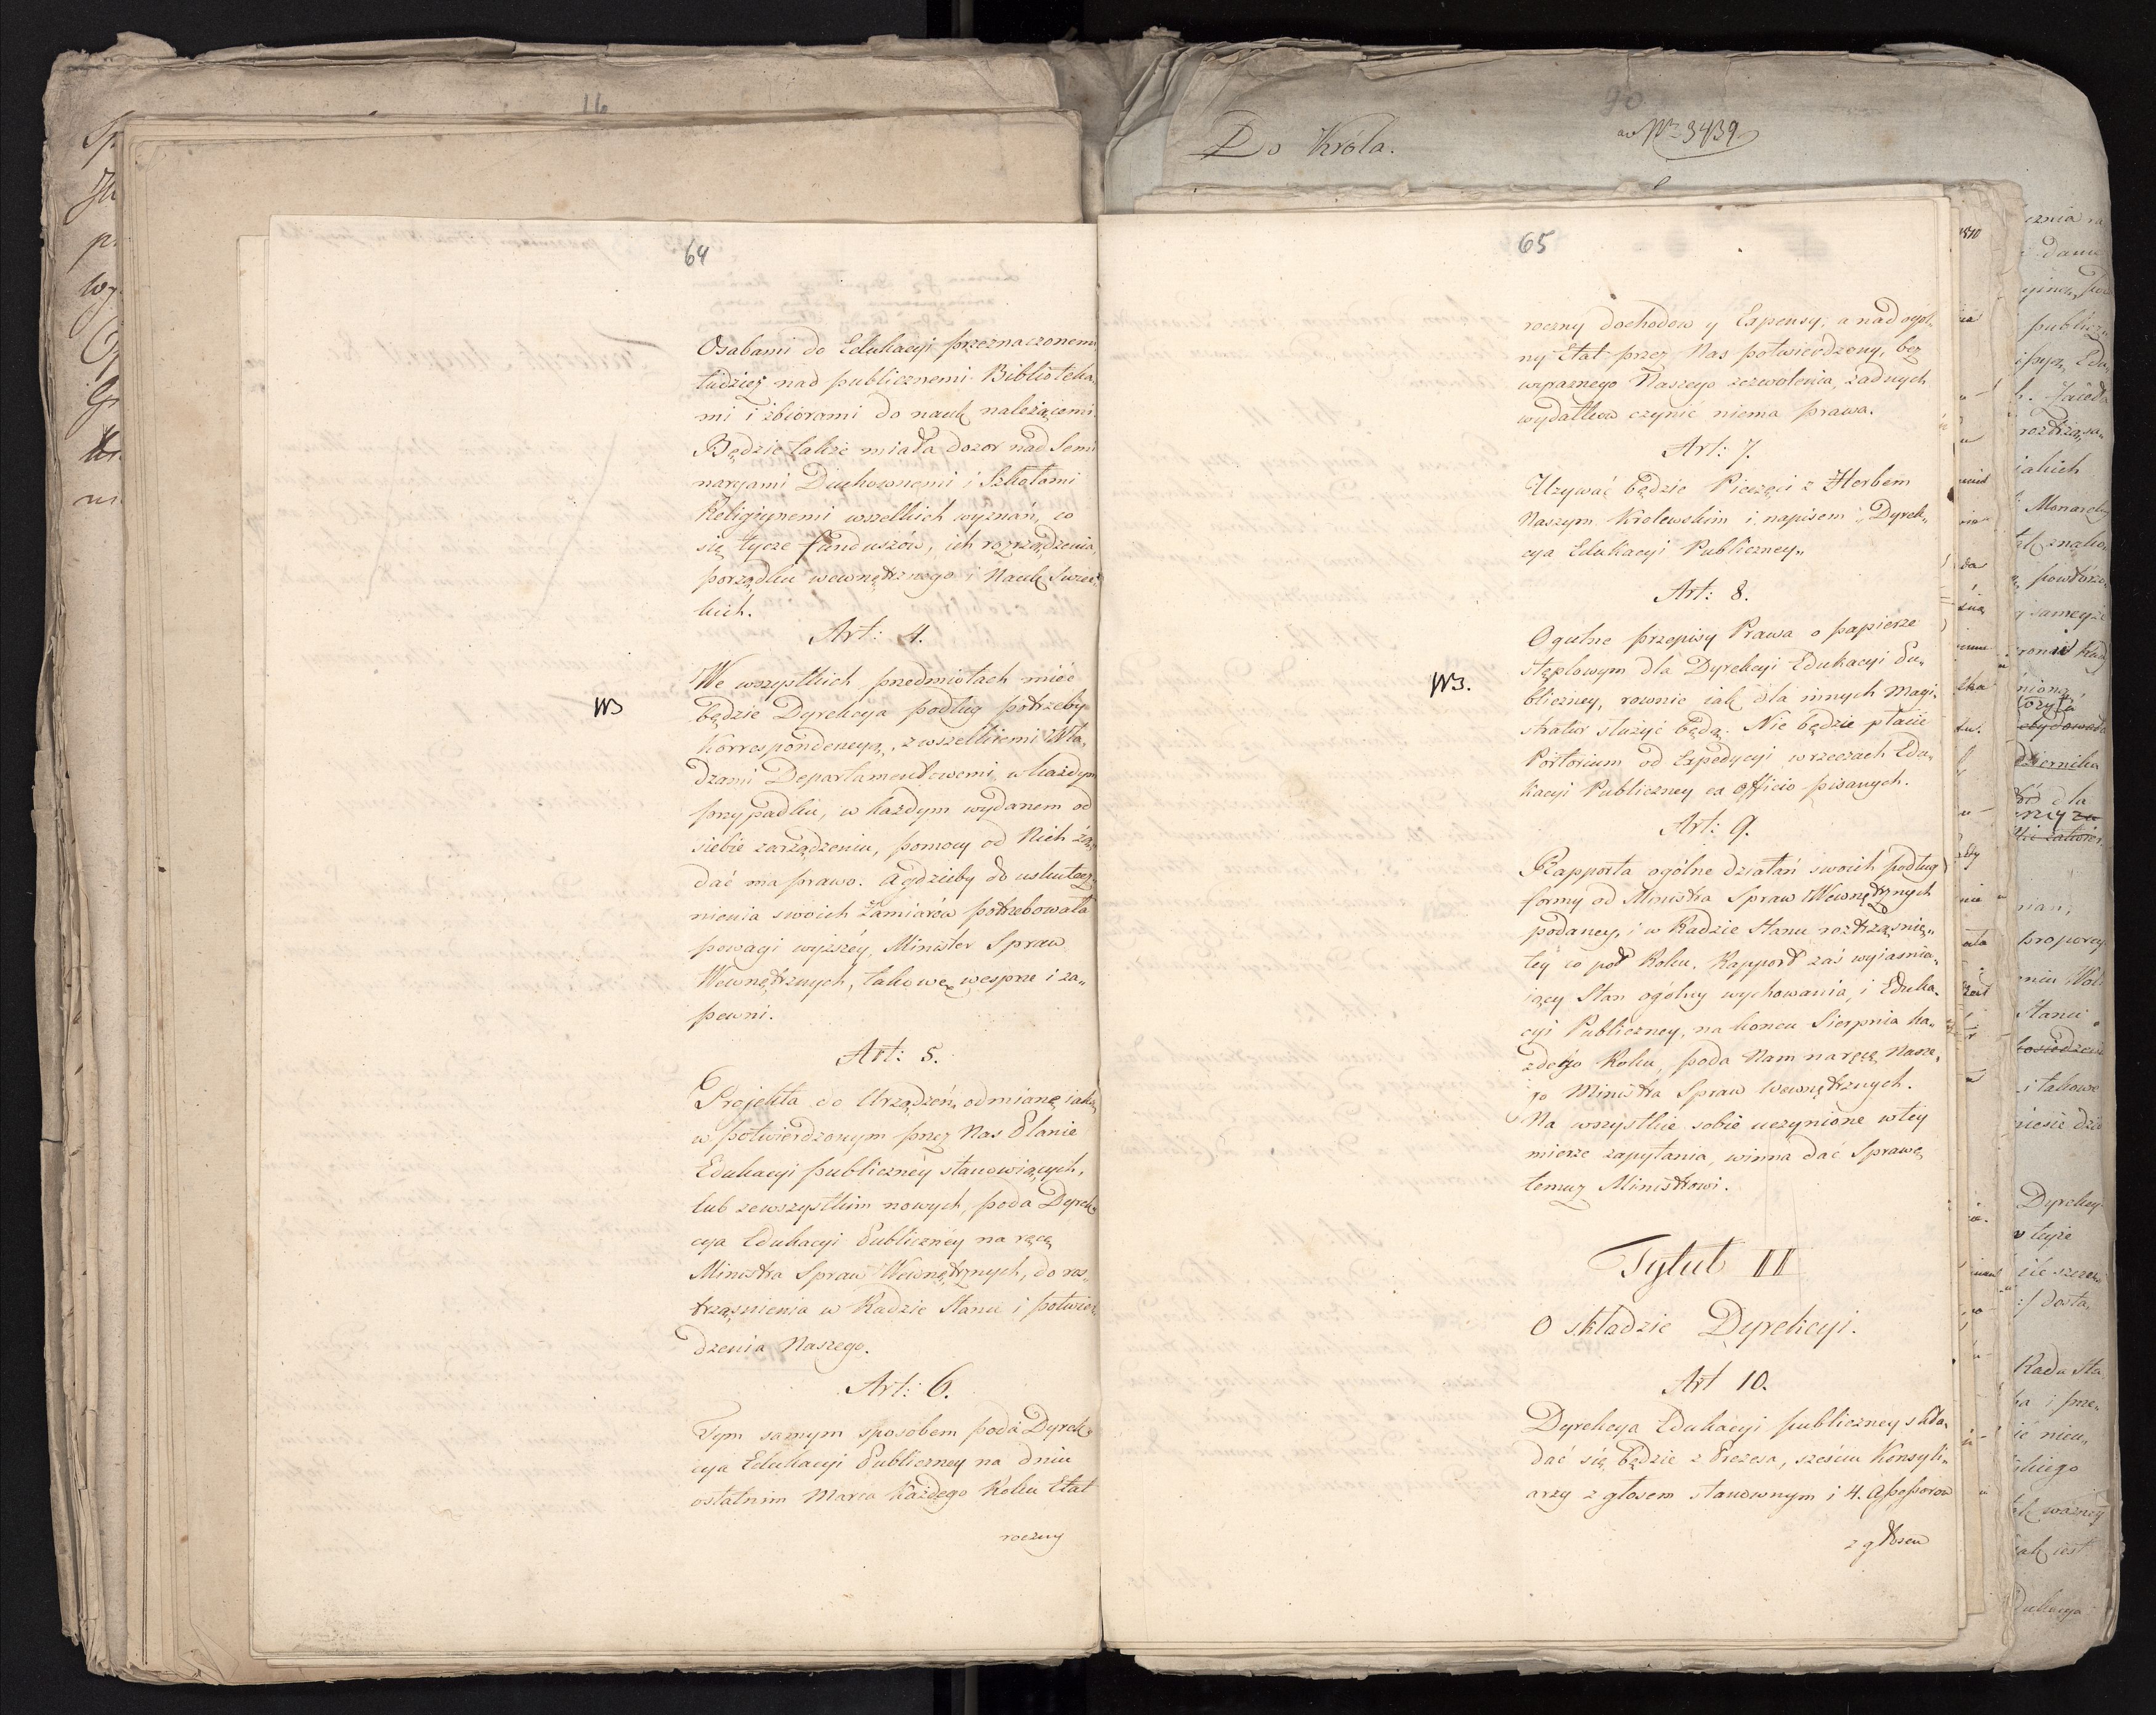 16
64
Osabami do Edukacyi przeznaczonemi
tudzież nad publicznemi Biblioteka„
mi i zbiorami do nauk należącemi.
Będzie także miała dozor nad Semi
naryami Duchownemi i Szkołami
Religiynemi wszelkich wyznań, co
się tycze funduszów, ich rozrządzenia,
porządku wewnętrznego i Nauk Swiec„
kich.
Art: 4.
We wszystkich przedmiotach mieć
będzie Dyrekcya podług potrzeby
Korrespondencyą, z wszelkiemi Wła„
dzami Departamentowemi, w każdym
przypadku, w każdym wydanem od
siebie zarządzeniu, pomocy od Nich żą„
dać ma prawo. A gdzieby do uskutecz„
nienia swoich zamiarów potrzebowała
powagi wyższéy, Minister Spraw
Wewnętrznych, takowe wesprze i za„
pewni.
Art: 5.
Projekta do Urządzeń, odmianę iaką
w potwierdzonym przez Nas Planie
Edukacyi publicznéy stanowiących,
lub zewszystkim nowych, poda Dyrek„
cya Edukacyi Publicznéy na ręce
Ministra Spraw Wewnętrznych, do ros„
trząśnienia w Radzie Stanu i potwier„
dzenia Naszego.
Art: 6.
Tym samym sposobem poda Dyrek„
cya Edukacyi Publiczney na dniu
ostatnim Marca Każdego Roku Etat
roczny
Do Króla.
90
ad Nr 3439
65
roczny dochodow y Expensy, a nad ogól„
ny Etat przez Nas potwierdzony, bez
wyraznego Naszego zezwolenia, żadnych
wydatkow czynić niema prawa.
Art: 7.
Używać będzie Pieczęci z Herbem
Naszym Krolewskim i napisem „Dyrek„
cya Edukacyi Publiczney„
Art: 8.
Ogulne przepisy Prawa o papierze
stęplowym dla Dyrekcyi Edukacyi Pu„
bliczney, rownie iak dla innych Magi„
stratur służyć będą. Nie będzie płacić
Portorium od Expedycyi w rzeczach Edu„
kacyi Publiczney ex Officio pisanych.
Art: 9.
Rapporta ogólne działań swoich podług
formy od Ministra Spraw Wewnętrznych
podaney, i w Radzie Stanu roztrząśnię„
téy co poł Roku. Rapport zaś wyiaśnia„
iący Stan ogólny wychowania, i Eduka„
cyi Publiczney, na koncu Sierpnia ka„
żdego Roku, poda Nam na ręce Nasze„
go Ministra Spraw Wewnętrznych.
Na wszystkie sobie uczynione w tey
mierze zapytania, winna dać Sprawę
temuż Ministrowi.
Tytuł II
O składzie Dyrekcyi.
Art 10.
Dyrekcya Edukacyi publiczney skła„
dać się będzie z Prezesa, sześciu Konsyli„
arzy z głosem stanownym i 4. Assessorow
z głosem